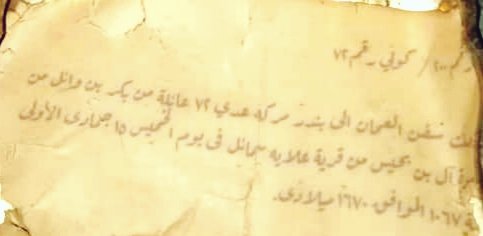 رقم ٢٠٠ / كوفي رقم ٧٢
سفن العمان الى بندر مركه عدي ٧٢ عائلة من بكر بن وائل من
آل بن خميس من قرية علايه سمائل في يوم الخميس ١٥ جمارى الأولى
١٠٦٧ الموافق ١٦٧٠ ميلادى.